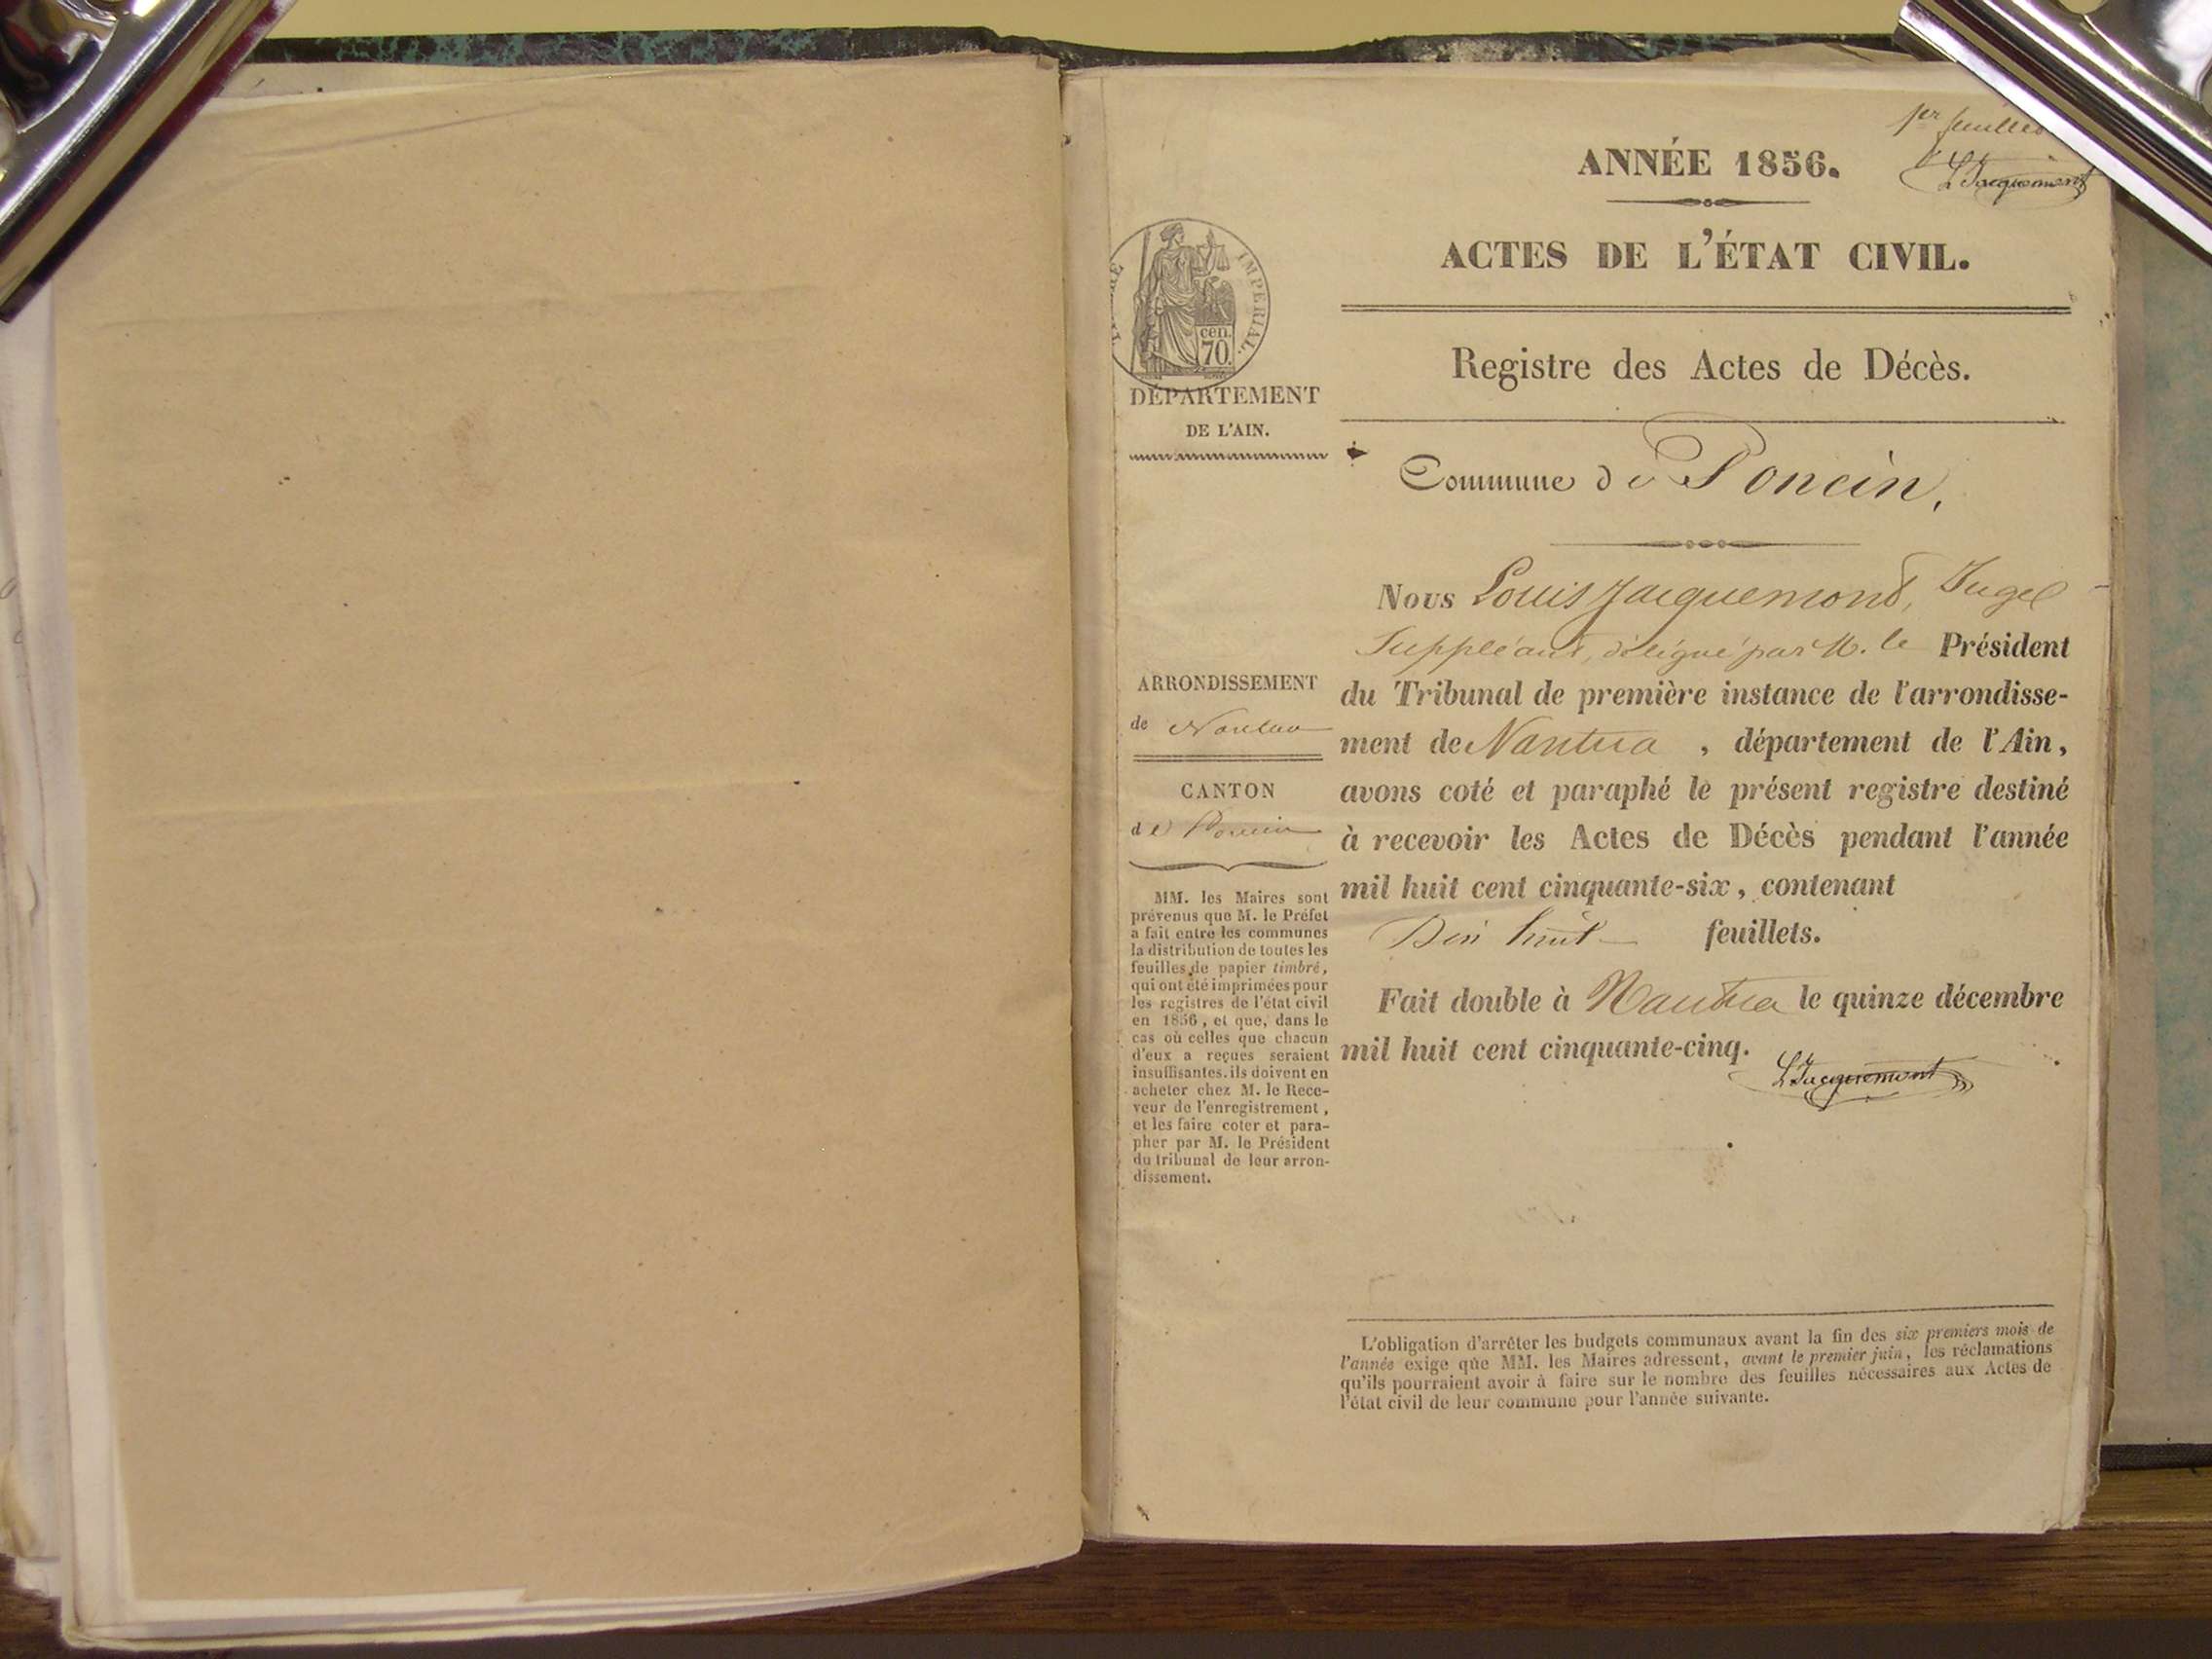 1er feuillet
L Jacquemont
ANNÉE 1856.
ACTES DE L'ÉTAT CIVIL.
IMPERIAL.
cen.
70
DÉPARTEMENT
DE L'AIN.
Registre des Actes de Décès.
Commune de Poncin,
Nous Louis Jacquemond, Juge
Suppléant, délégué par M. le Président
du Tribunal de première instance de l'arrondisse-
ment de Nantua, département de l'Ain,
avons coté et paraphé le présent registre destiné
à recevoir les Actes de Décès pendant l'année
mil huit cent cinquante-six, contenant
Dix huit feuillets.
Fait double à Nantua le quinze décembre
mil huit cent cinquante-cinq.
L Jacquemont
ARRONDISSEMENT
de Nantua
CANTON
de Poncin
MM. les Maires sont
prévenus que M. le Préfet
a fait entre les communes
la distribution de toutes les
feuilles de papier timbré,
qui ont été imprimées pour
les registres de l'état civil
en 1856, et que, dans le
cas où celles que chacun
d'eux a reçues seraient
insuffisantes, ils doivent en
acheter chez M. le Rece-
veur de l'enregistrement,
et les faire coter et para-
pher par M. le Président
du tribunal de leur arron-
dissement.
L'obligation d'arrêter les budgets communaux avant la fin des six premiers mois de
l'année exige que MM. les Maires adressent, avant le premier juin, les réclamations
qu'ils pourraient avoir à faire sur le nombre des feuilles nécessaires aux Actes de
l'état civil de leur commune pour l'année suivante.